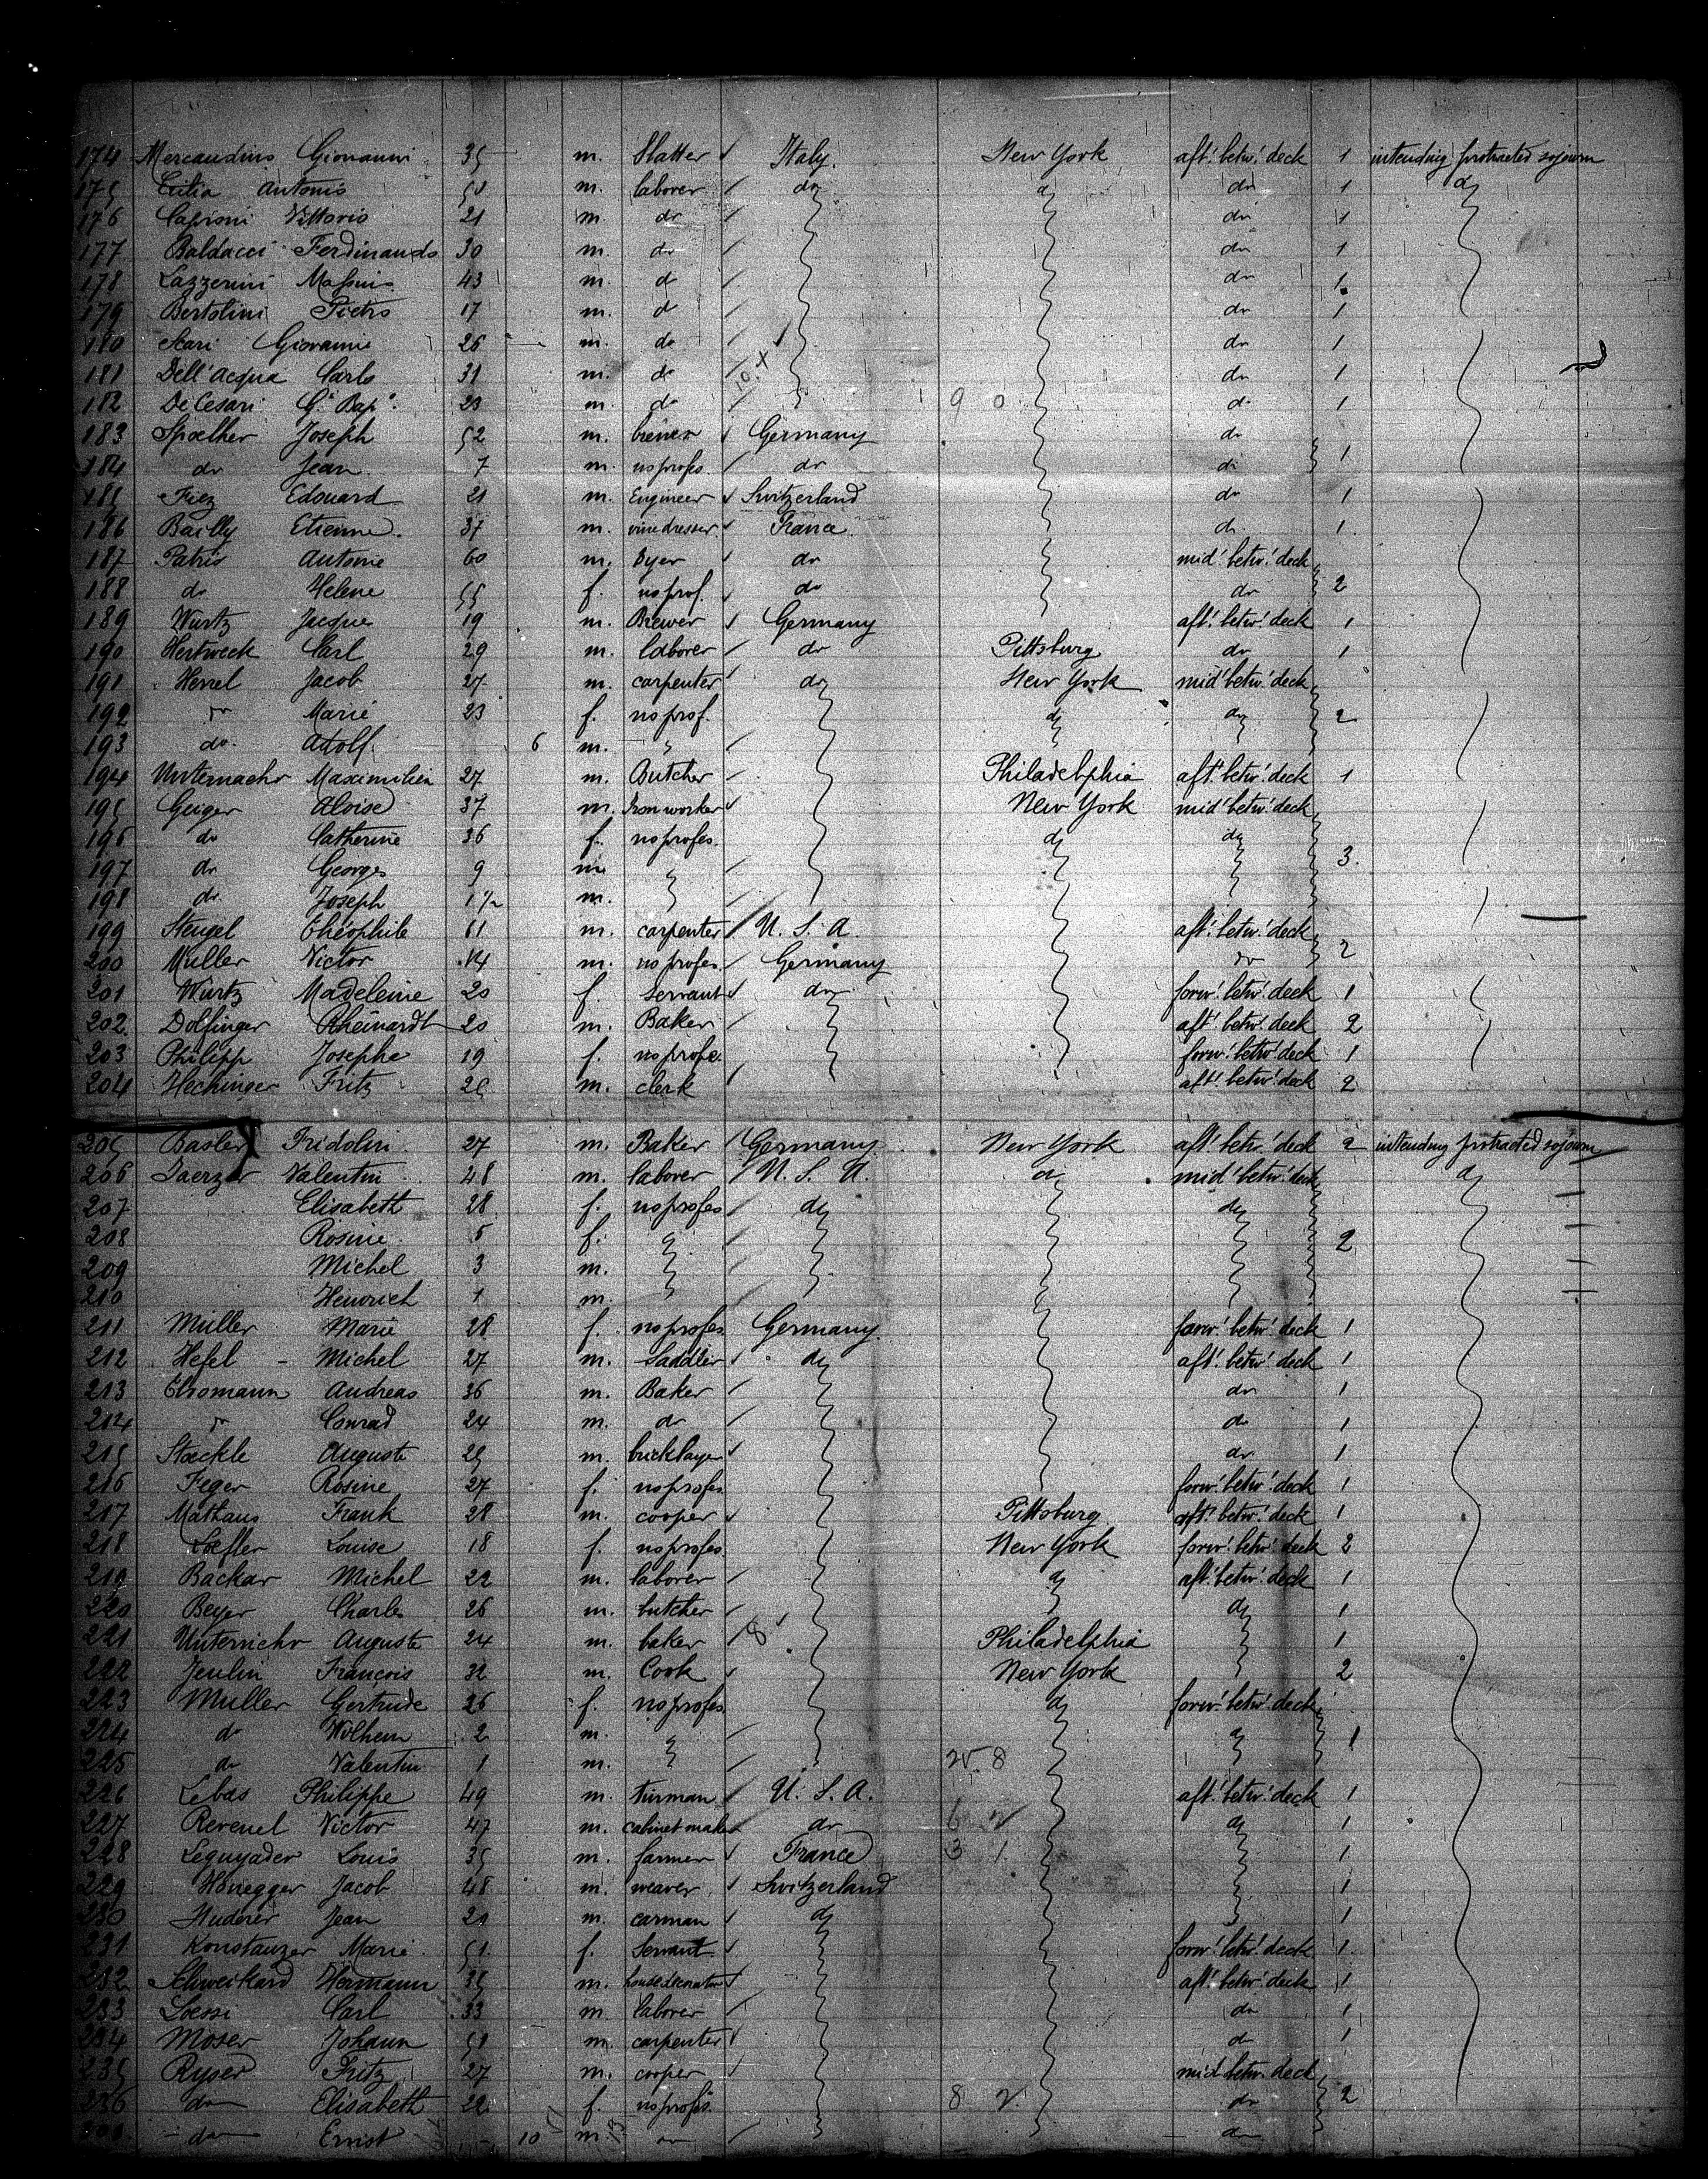 174 Mercandino Giovanni 35 m. Slatter Italy. New York aft! betw! deck 1 intending protracted sojourn
175 Cilia Antonio 50 m. laborer do do do 1 do
176 Capioni Vittorio 21 m. do do 1
177 Baldacci Ferdinando 30 m. do do 1
178 Lazzerini Massimo 43 m. do do 1
179 Bertolini Pietro 17 m. do do 1
180 Scari Giovanni 26 m. do do 1
181 Dell'acqua Carlo 31 m. do do 1
182 De Cesari G. Bap. 23 m. do 9 0 do 1
183 Spoelher Joseph 52 m. brewer Germany do
184 do Jean 7 m. no profes. do do 1
185 Fiez Edouard 21 m. Engineer Switzerland do 1
186 Bailly Etienne. 37 m. vine dresser France do 1
187 Patris Antoine 60 m. Dyer do mid! betw! deck
188 do Helene 55 f. no prof. do do 2
189 Wurtz Jacques 19 m. Brewer Germany aft! betw! deck 1
190 Hertweck Carl 29 m. laborer do Pittsburg do 1
191 Herrel Jacob 27 m. carpenter do New York mid! betw! deck
192 do Marie 23 f. no prof. do do 2
193 do. Adolf. 6 m.
194 Unternachr Maximilien 27 m. Butcher Philadelphia aft! betw! deck 1
195 Geiger Aloise 37 m. Iron worker New York mid! betw! deck
196 do Catherine 36 f. no profes. do do
197 do Georges 9 m 3.
198 do Joseph 1 1/2 m.
199 Stengel Théophile 61 m. carpenter U. S. A. aft! betw! deck
200 Muller Victor 14 m. no profes. Germany do 2
201 Wurtz Madeleine 20 f. servant do forw! betw! deck 1
202. Dolfinger Rheinardt 20 m. Baker aft! betw! deck 2
203 Philipp Josephe 19 f. no profe. forw! betw! deck 1
204 Hechinger Fritz 26 m. clerk aft! betw! deck 2
205 Basler Fridolin 27 m. Baker Germany New York aft! betw! deck 2 intending protracted sojourn
206 Jaerger Valentin 48 m. laborer U. S. A. do mid! betw! deck do
207 Elisabeth 28 f. no profes do do
208 Rosine 5 f. 2
209 Michel 3 m.
210 Heinrich 1 m.
211 Müller Marie 28 f. no profes Germany forw! betw! deck 1
212 Hefel - Michel 27 m. Saddler do aft! betw! deck 1
213 Ehromann Andreas 36 m. Baker do 1
214 do Conrad 24 m. do do 1
215 Stoeckle Auguste 25 m. bricklayer do 1
216 Feger Rosine 27 f. no profes. forw! betw! deck 1
217 Mathaus Frank 28 m. cooper Pittsburg aft! betw! deck 1
218 Loefler Louise 18 f. no profes. New York forw! betw! deck 2
219 Backar Michel 22 m. laborer do aft! betw! deck 1
220 Beyer Charles 26 m. butcher do 1
221 Unternichr Auguste 24 m. baker 8 Philadelphia 1
222 Jeulin François 32 m. Cook New York 2
223 Muller Gertrude 26 f. no profes. do forw! betw! deck
224 do Wilhem 2 m. do 1
225 do Valentin 1 m. 8
226 Lebas Philippe 49 m. U. S. A. aft! betw! deck 1
227 Revenel Victor 47 m. cabinet maker do 6 do 1
228 Leguyader Louis 35 m. farmer France 3 1. 1
229 Honegger Jacob 48 m. weaver Switzerland 1
230 Huderer Jean 20 m. carman do 1
231 Konstanzer Marie 51 f. Servant forw! betw! deck 1.
232 Schweikard Hermann 35 m. house decorator aft! betw! deck 1
233 Loessi Carl 33 m. laborer do 1
234 Moser Johann 51 m. carpenter do 1
235 Ryser Fritz 27 m. cooper mid betw! deck
236 do Elisabeth 22 f. no profes. 8 do 2
do Ernst 10 m. do